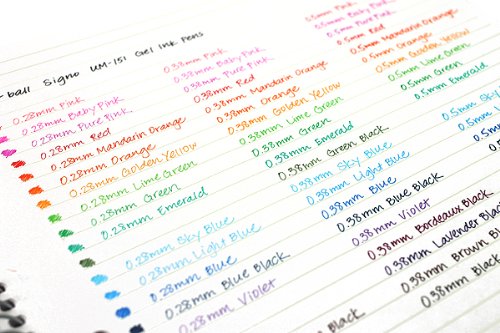 -ball Signo UM-151 Gel Ink Pens
0.28mm Pink
0.28mm Baby Pink
0.28mm Pure Pink
0.28mm Red
0.28mm Mandarin Orange
0.28mm Orange
0.28mm Golden Yellow
0.28mm Lime Green
0.28mm Green
0.28mm Emerald
0.28mm Sky Blue
0.28mm Light Blue
0.28mm Blue
0.28mm Blue Black
0.28mm Violet
Black
0.38mm Pink
0.38mm Baby Pink
0.38mm Pure Pink
0.38mm Red
0.38mm Mandarin Orange
0.38mm Orange
0.38mm Golden Yellow
0.38mm Lime Green
0.38mm Green
0.38mm Emerald
0.38mm Green Black
0.38mm Sky Blue
0.38mm Light Blue
0.38mm Blue
0.38mm Blue Black
0.38mm Violet
0.38mm Bordeaux Black
0.38mm Lavender Black
0.38mm Brown Bl
0.38mm Black
0.5mm Pink
0.5mm Baby Pink
0.5mm Pure Pink
0.5mm Red
0.5mm Mandarin Orange
0.5mm Orange
0.5mm Golden Yellow
0.5mm Lime Green
0.5mm Green
0.5mm Emerald
0.5mm Sky
0.5mm